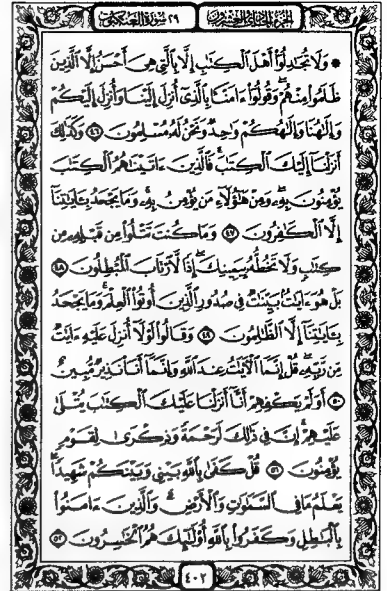 الجزء الحادي والعشرون ٢٩ سورة العنكبوت
۞ وَلَا تُجَٰدِلُوٓا۟ أَهْلَ ٱلْكِتَٰبِ إِلَّا بِٱلَّتِى هِىَ أَحْسَنُ إِلَّا ٱلَّذِينَ
ظَلَمُوا۟ مِنْهُمْ ۖ وَقُولُوٓا۟ ءَامَنَّا بِٱلَّذِىٓ أُنزِلَ إِلَيْنَا وَأُنزِلَ إِلَيْكُمْ
وَإِلَٰهُنَا وَإِلَٰهُكُمْ وَٰحِدٌ وَنَحْنُ لَهُۥ مُسْلِمُونَ ٤٦ وَكَذَٰلِكَ
أَنزَلْنَآ إِلَيْكَ ٱلْكِتَٰبَ ۚ فَٱلَّذِينَ ءَاتَيْنَٰهُمُ ٱلْكِتَٰبَ
يُؤْمِنُونَ بِهِۦ ۖ وَمِنْ هَٰٓؤُلَآءِ مَن يُؤْمِنُ بِهِۦ ۚ وَمَا يَجْحَدُ بِـَٔايَٰتِنَآ
إِلَّا ٱلْكَٰفِرُونَ ٤٧ وَمَا كُنتَ تَتْلُوا۟ مِن قَبْلِهِۦ مِن
كِتَٰبٍ وَلَا تَخُطُّهُۥ بِيَمِينِكَ ۖ إِذًا لَّٱرْتَابَ ٱلْمُبْطِلُونَ ٤٨
بَلْ هُوَ ءَايَٰتٌۢ بَيِّنَٰتٌ فِى صُدُورِ ٱلَّذِينَ أُوتُوا۟ ٱلْعِلْمَ ۚ وَمَا يَجْحَدُ
بِـَٔايَٰتِنَآ إِلَّا ٱلظَّٰلِمُونَ ٤٩ وَقَالُوا۟ لَوْلَآ أُنزِلَ عَلَيْهِ ءَايَٰتٌ
مِّن رَّبِّهِۦ ۖ قُلْ إِنَّمَا ٱلْـَٔايَٰتُ عِندَ ٱللَّهِ وَإِنَّمَآ أَنَا۠ نَذِيرٌ مُّبِينٌ
٥٠ أَوَلَمْ يَكْفِهِمْ أَنَّآ أَنزَلْنَا عَلَيْكَ ٱلْكِتَٰبَ يُتْلَىٰ
عَلَيْهِمْ ۚ إِنَّ فِى ذَٰلِكَ لَرَحْمَةً وَذِكْرَىٰ لِقَوْمٍ
يُؤْمِنُونَ ٥١ قُلْ كَفَىٰ بِٱللَّهِ بَيْنِى وَبَيْنَكُمْ شَهِيدًا ۖ
يَعْلَمُ مَا فِى ٱلسَّمَٰوَٰتِ وَٱلْأَرْضِ ۗ وَٱلَّذِينَ ءَامَنُوا۟
بِٱلْبَٰطِلِ وَكَفَرُوا۟ بِٱللَّهِ أُو۟لَٰٓئِكَ هُمُ ٱلْخَٰسِرُونَ ٥٢
٤٠٢